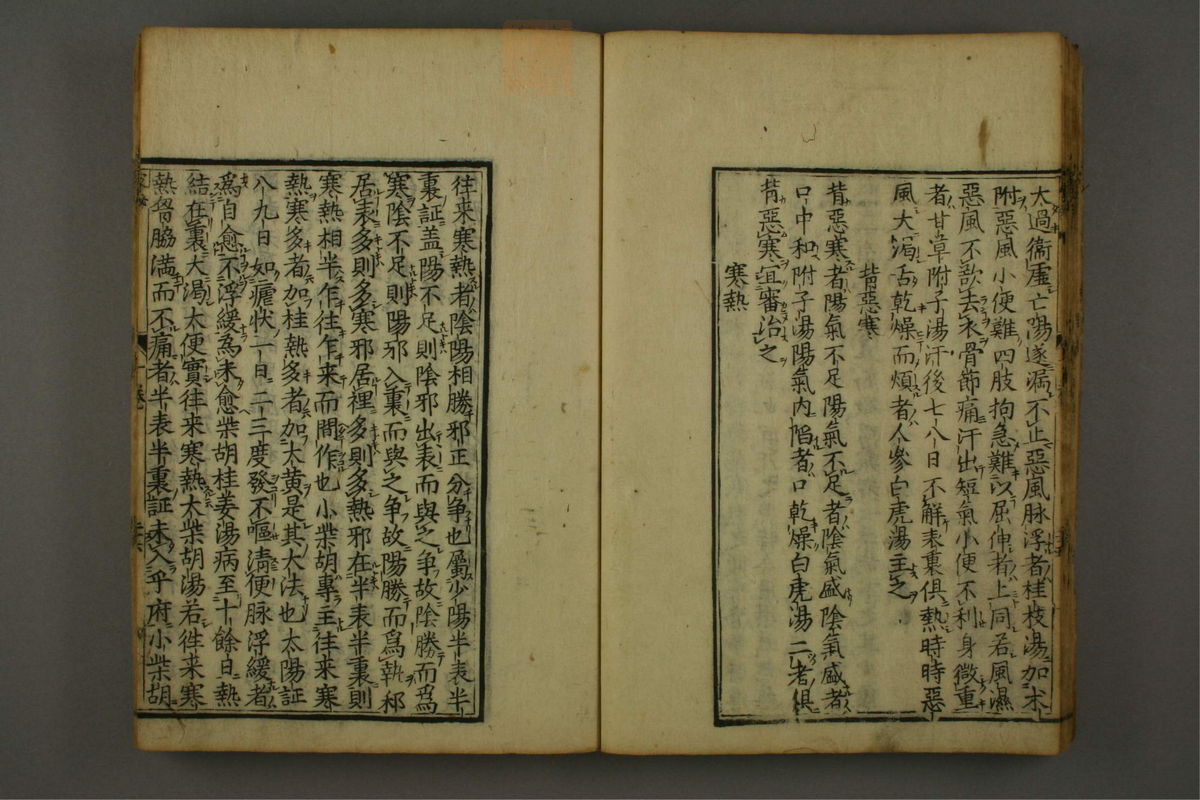 大過衞虛亡陽遂漏不止惡風脉浮者桂枝湯加术
附惡風小便難四肢拘急難以屈伸者上同若風濕
惡風不欲去衣骨節痛汗出短氣小便不利身微重
者甘草附子湯汗後七八日不解表裏俱熱時時惡
風大渴舌乾燥而煩者人參白虎湯主之
背惡寒
背惡寒者陽氣不足陽氣不足者陰氣盛陰氣盛者
口中和附子湯陽氣内陷者口乾燥白虎湯二者俱
背惡寒宜審治之
寒熱
往来寒熱者陰陽相勝邪正分争也屬少陽半表半
裏証盖陽不足則陰邪出表而與之争故陰勝而爲
寒陰不足則陽邪入裏而與之争故陽勝而爲熱邪
居表多則多寒邪居裡多則多熱邪在半表半裏則
寒熱相半乍往乍来而間作也小柴胡專主往来寒
熱寒多者加桂熱多者加大黄是其大法也太陽証
八九日如瘧状一日二三度發不嘔淸便脉浮緩者
爲自愈不浮緩為未愈柴胡桂姜湯病至十餘日熱
結在裏大渇大便實往来寒熱大柴胡湯若徃来寒
熱胷脇満而不痛者半表半裏証未入乎府小柴胡